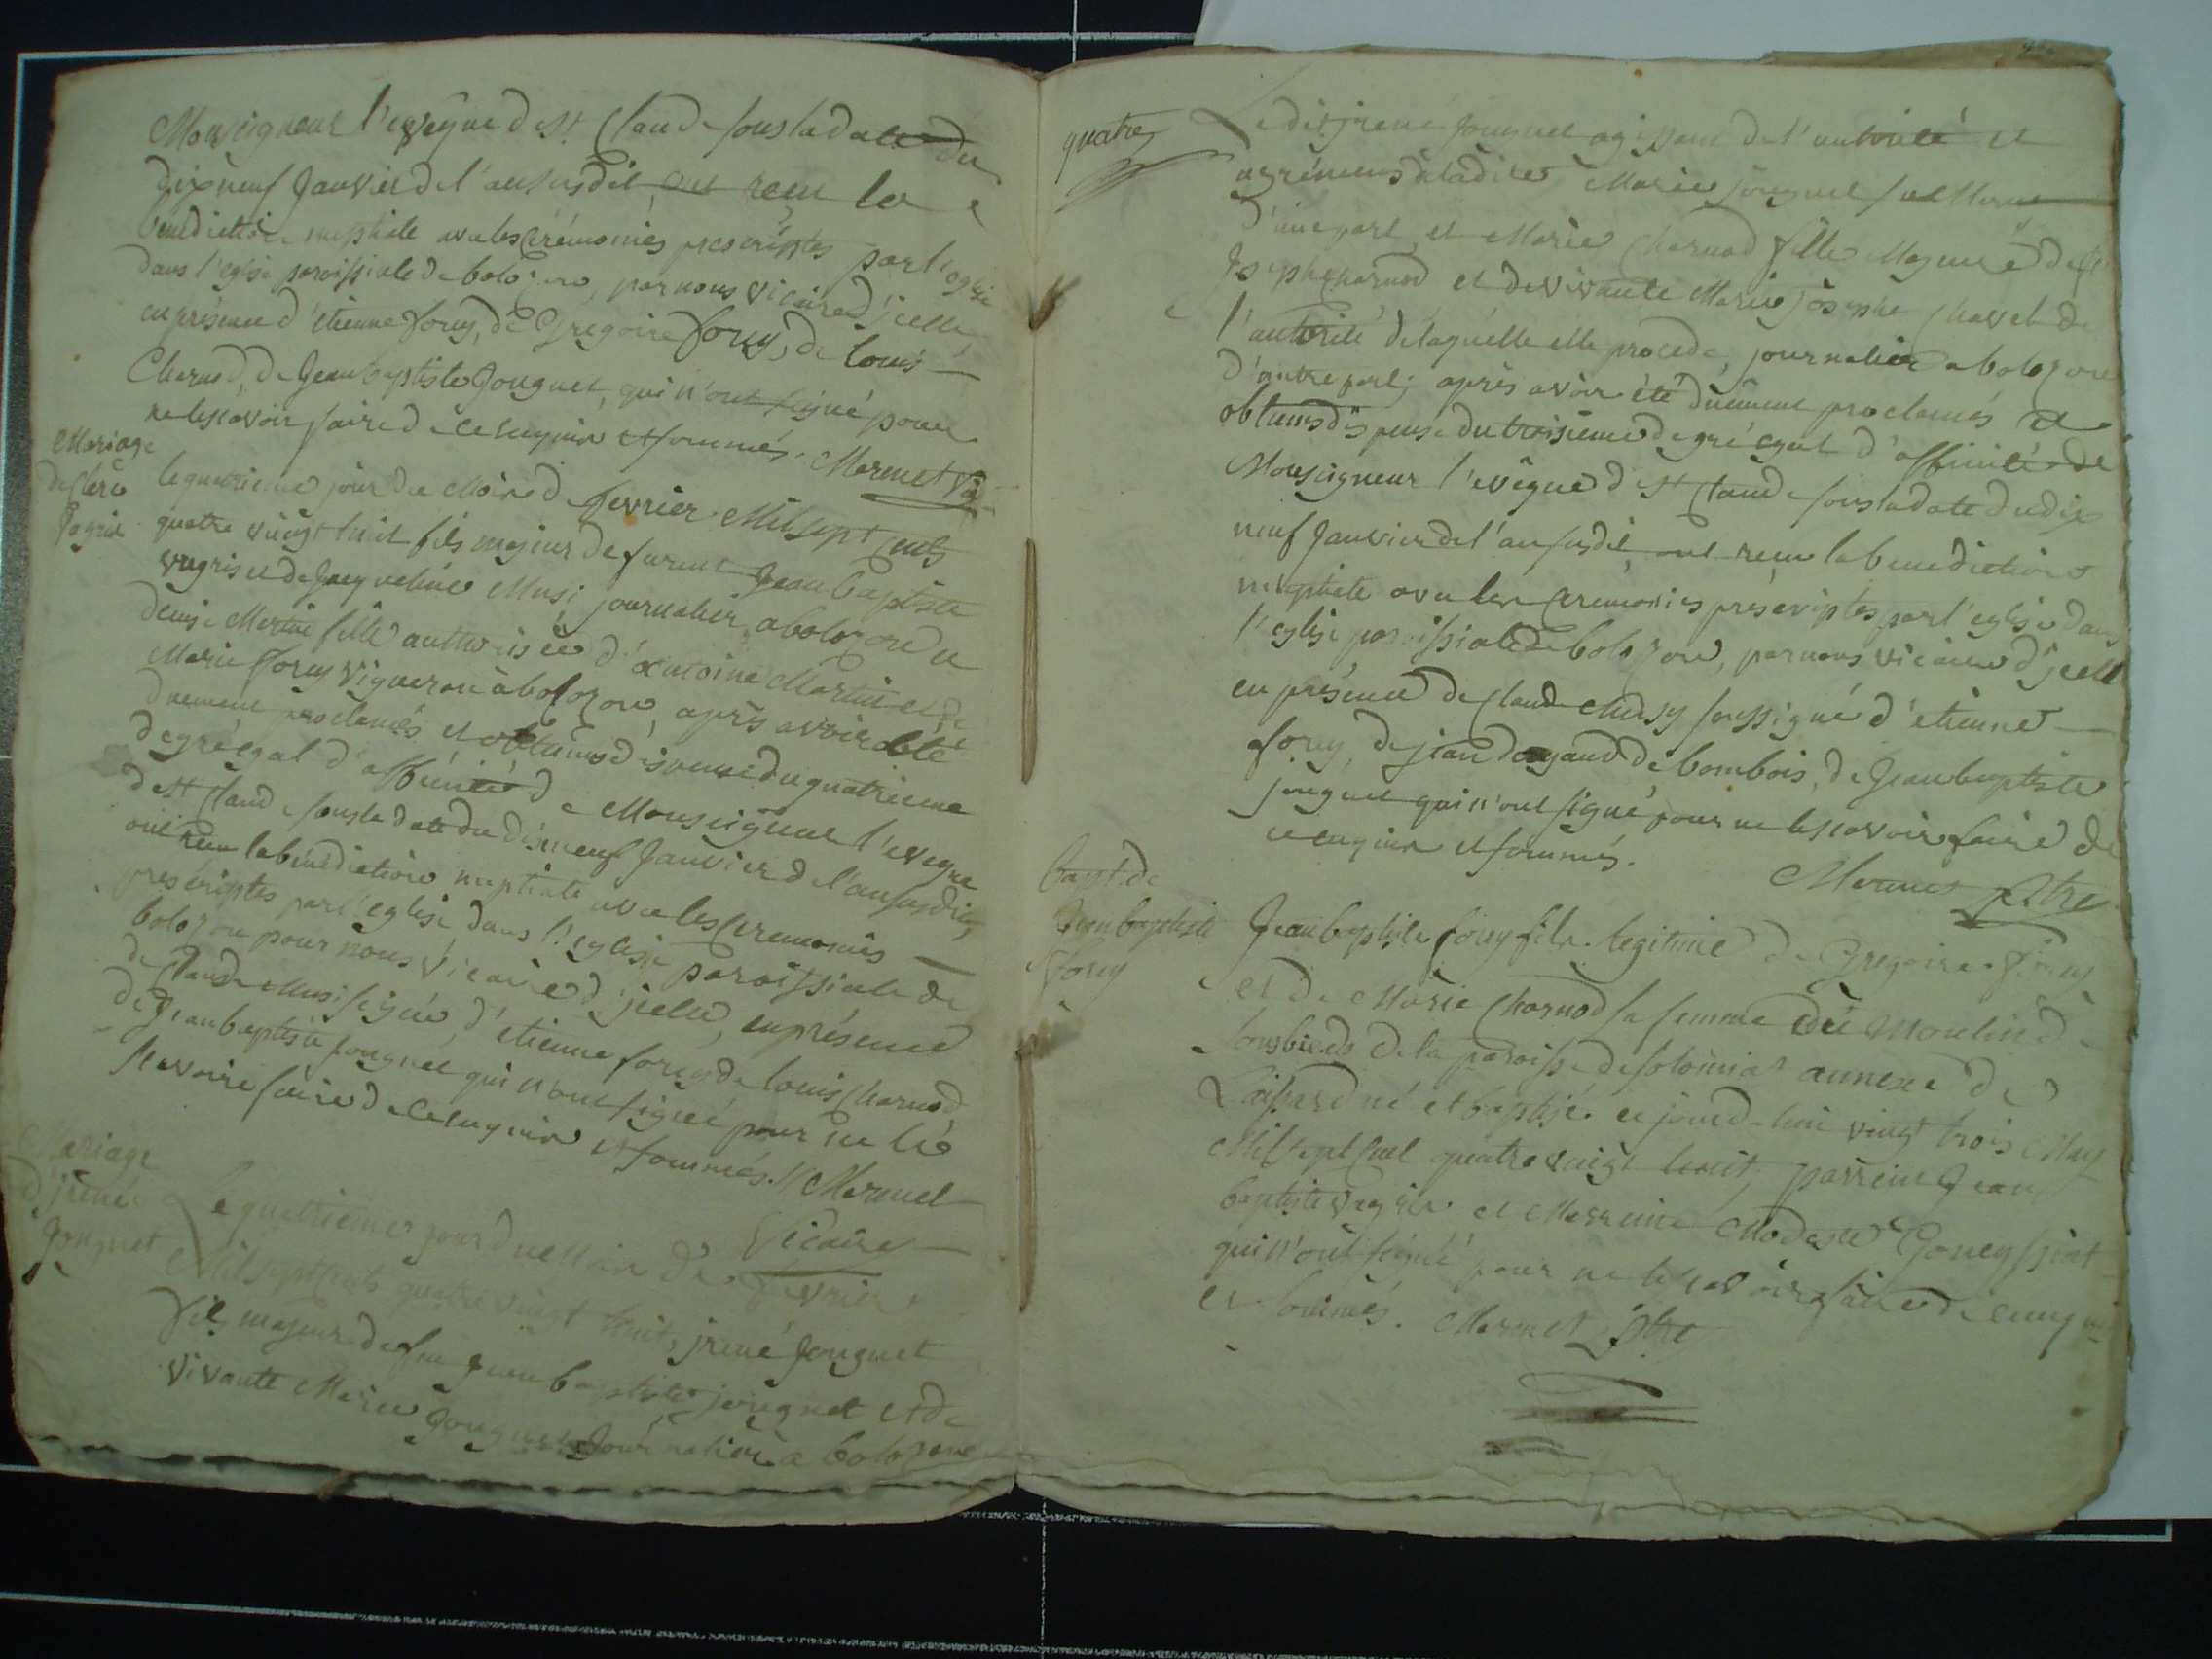 Monseigneur l'evêque de St Claude sous la date du
dix neuf Janvier de l'an susdit, ont reçu la
bénédiction nuptiale avec les cérémonies prescriptes par l'eglise
dans l'eglise paroissiale de bolozon, par nous vicaire d'jcelle,
en présence d'etienne forey, de Gregoire forey, de Louis
Charnod, de Jean baptiste Jouguet, qui n'ont signé pour
ne le scavoir faire de ce enquis et sommés. Mermet
Mariage
de
le quatrieme jour du Mois de fevrier Mil sept cents
quatre vingt huit fils majeur de furent Jean baptiste
vugris et de Jacqueline Musi journalier a bolozon
denise Martin fille authorisée d'antoine Martin et de
Marie forey vigneron à bolozon, après avoir été
duement proclamés et obtenus dispense du quatrieme
degré egal d'affinité de Monseigneur l'eveque
de St Claude sous la date du dixneuf Janvier de l'an susdit,
ont reçu la bénédiction nuptiale avec les ceremonies
prescriptes par l'eglise dans l'eglise paroissiale de
bolozon pour nous vicaire d'jcelle, en présence
de Claude Musi signé, d'etienne forey de Louis Charnod
de Jean baptiste jouguet qui n'ont signé pour ne le
scavoire faire de ce enquis et sommés. Mermet
Vicaire
Mariage
d'jrené
Jouguet
Le quatrieme jour du Mois de fevrier
Mil sept cents quatre vingt huit, jrené Jouguet
fils majeur de feu Jean baptiste jouguet et de
vivante Marie Jouguet journalier a bolozon
quatre
Ledit jrené Jouguet agissant de l'autorité et
agrément de ladite Marie jouguet sa Mere
d'une part, et Marie Charnod fille Majeure de fu
Joseph Charnod et de vivante Marie Josephe Chavet de
l'autorité de laquelle elle procede, journaliere a bolozon
d'autre part; après avoir été duement proclamés et
obtenus dispense du troisieme degré egal d'affinité de
Monseigneur l'evêque de St Claude sous la date du dix
neuf Janvier de l'an susdit, ont reçu la benediction
nuptiale avec les ceremonies prescriptes par l'eglise dans
l'eglise paroissiale de bolozon, par nous vicaire d'jcelle
en présence de Claude Musy soussigné d'etienne
forey, de jean de bombois, de Jean baptiste
jouguet qui n'ont signé pour ne le scavoir faire de
ce enquis et sommés.
Mermet Ptre
bapt. de
Jean baptiste
forey
Jean baptiste forey fils legitime de Gregoire forey
et de Marie Charnod sa femme du Moulin de
de la paroisse de solomiat annexe de
né et baptisé ce jourd-hui vingt trois May
Mil sept cent quatre vingt huit, parrein Jean
baptiste vugris et Marreine Modeste
qui n'ont signé pour ne le scavoir faire de enquis
et sommés. Mermet Ptre